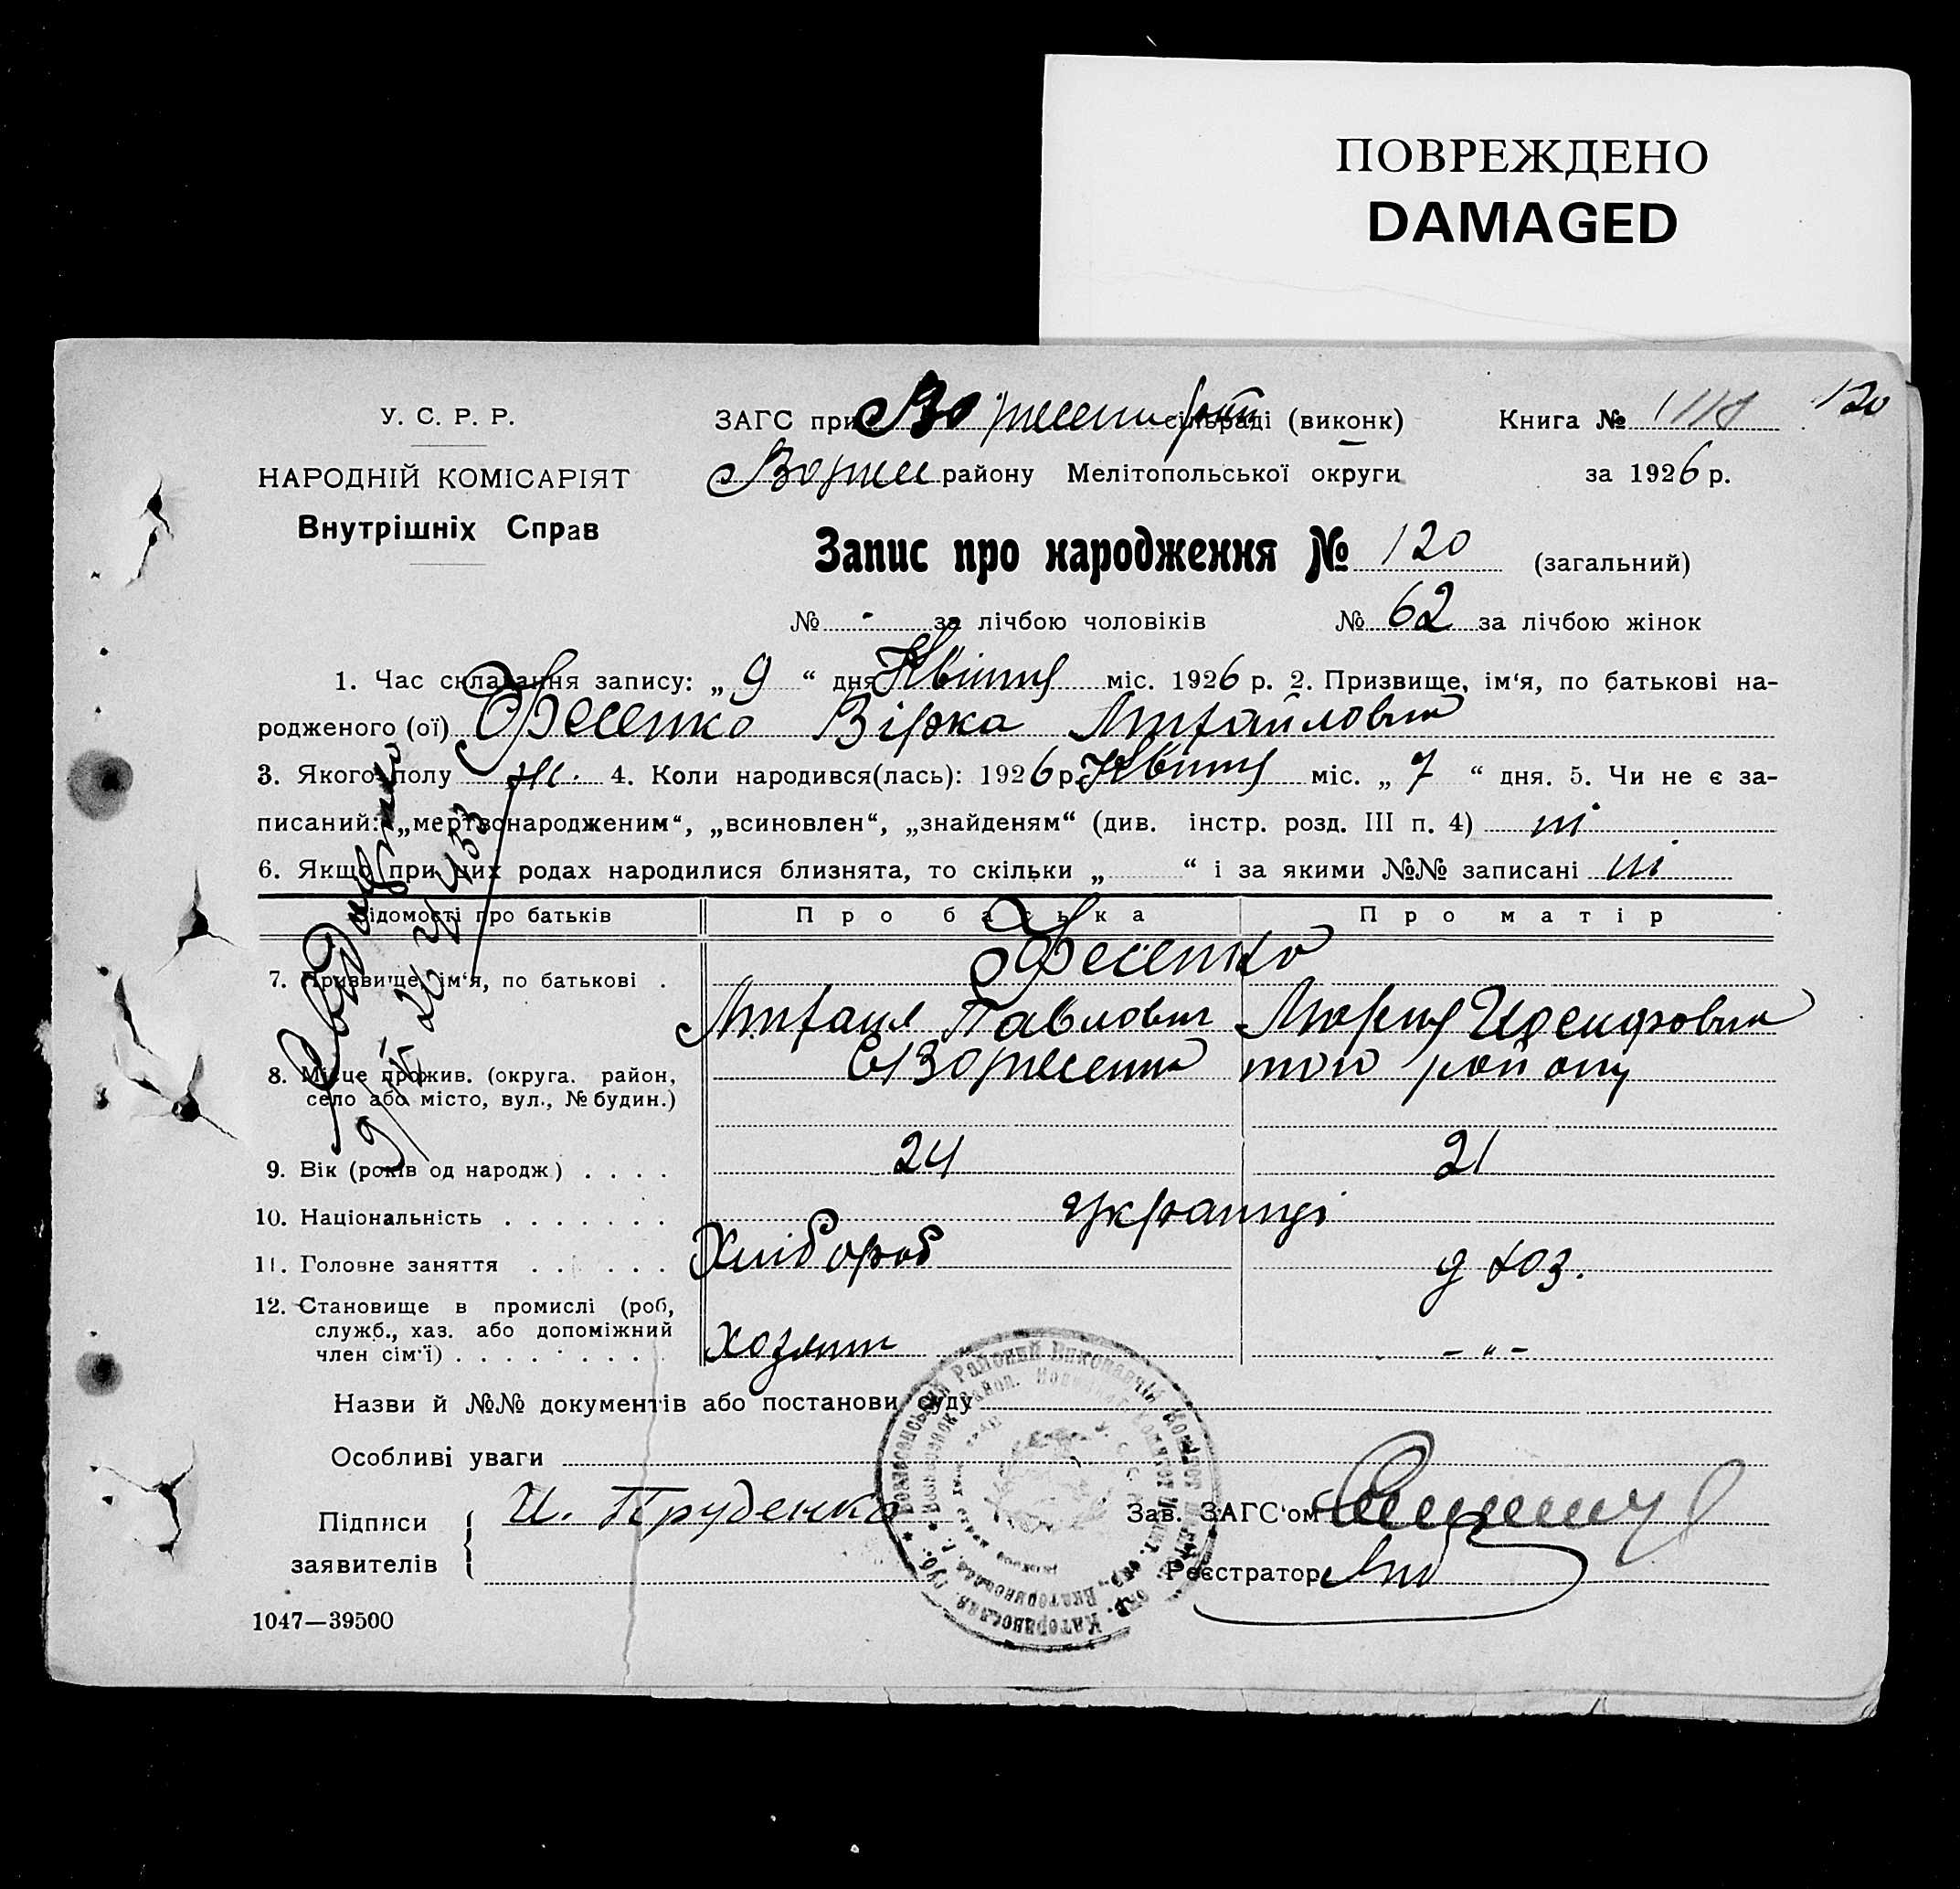 ПОВРЕЖДЕНО
DAMAGED
У. С. Р. Р.
НАРОДНІЙ КОМІСАРІЯТ
Внутрішніх Справ
ЗАГС при сільраді (виконк)
району Мелітопольської округи
Книга № 120
за 1926 р.
Запис про народження № 120 (загальний)
№ - за лічбою чоловіків № 62 за лічбою жінок
1. Час складання запису: „ 9 “ дня Квітня міс. 1926 р. 2. Призвище, ім‘я, по батькові на-
родженого (ої) Фесенко Вірка Михайловна
3. Якого полу ж. 4. Коли народився(лась): 1926 р. Квітня міс. „ 7 “ дня. 5. Чи не є за-
писаний: „мертвонародженим“, „всиновлен“, „знайденям“ (див. інстр. розд. III п. 4) ні
6. Якщо при цих родах народилися близнята, то скільки „ “ і за якими №№ записані ні
Відомості про батьків Про батька Про матір
Фесенко
7. Призвище, ім‘я, по батькові .
Михаил Павлович Мария Иосифовна
8. Місце прожив. (округа. район,
село або місто, вул., № будин.)
Вознесенка того району
9. Вік (років од народж) . . . . 24 21
10. Національність . . . . . . . українці
11. Головне заняття . . . . . Хлібороб д хоз.
12. Становище в промислі (роб,
служб., хаз. або допоміжний
член сім‘ї) . . . . . . . . . Хозяин - „ -
Назви й №№ документів або постанови суду
Особливі уваги
Підписи
заявителів
И. Пруденко
Зав. ЗАГС‘ом
Реєстратор
1047—39500